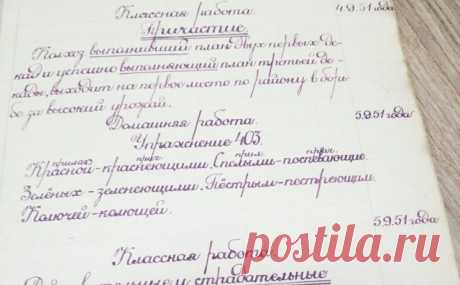 Классная работа. 4.9.51 года
Причастие
Колхоз выполнивший план двух первых де-
кад и успешно выполняющий план третьей де-
кады, выходит на первое место по району в борь-
бе за высокий урожай.
Домашняя работа. 5.9.51 года
Упражнение 403.
прилаг. прич. прил. прич.
Красной-краснеющими. Спелыми-поспевающие.
Зелёных-зеленеющими. Пёстрым-пестреющим.
Колючей-колющей.
5.9.51 года
Классная работа.
Действительные и страдательные
postila.ru